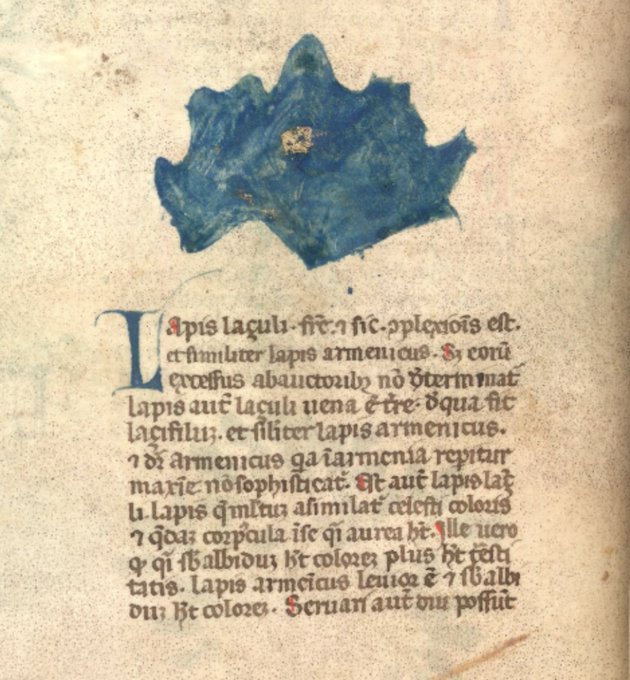 Lapis laçuli. fr̃e. ⁊ sic̃. ꝯplexiõis est.
et similiter lapis armenicus. Sꝫ eorũ
excessus abauctoribꝫ nõ d̾terminnat̃
lapis aut̃ laçuli uena ẽ t̃re. d̾qua fit
laçifiliuꝫ. et siliter lapis armenicus.
⁊ dr̃ armenicus qa ĩarmenia repitur
maxĩe nõ sophisticat̃. Est aut̃ lapis laç
li. lapis asimilat̃ celesti coloris
⁊ q̃daꝫ corpꝰcula ĩse qi aurea ht̃. Ille uero
qi sb̃albiduꝫ ht̃ colorez plus ht̃ t̃resti
tatis. lapis armeĩcus leuior ẽ ⁊ sb̃albi
duꝫ ht̃ colorez. Seruari aut̃ diu possũt